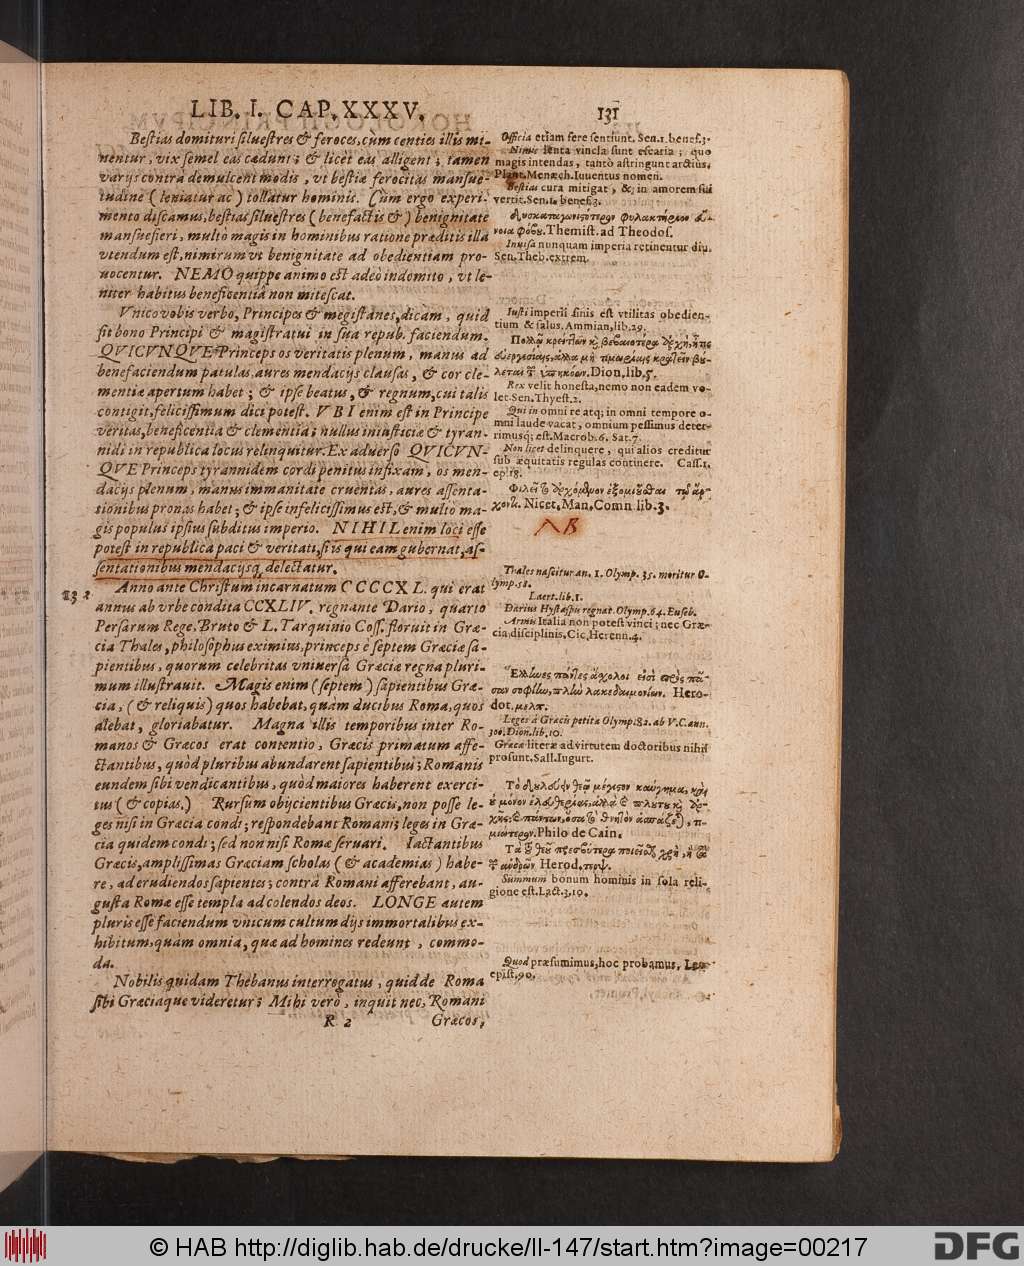 LIB. I. CAP. XXXV. 131
Bestias domituri siluestres & feroces, cùm centies illis mi-
nentur, vix semel eas cædunt; & licèt eas alligent; tamen
varijs contrà demulcent modis, vt bestiæ ferocitas mansue-
tudine (leniatur ac) tollatur hominis. Cùm ergo experi-
mento discamus, bestias siluestres (benefactis &) benignitate
mansuefieri, multò magis in hominibus ratione præditis illa
vtendum est, nimirum vt benignitate ad obedientiam pro-
uocentur. NEMO quippe animo est adeò indomito, vt le-
niter habitus beneficentiâ non mitescat.
Vnico vobis verbo, Principes & megistanes, dicam, quid
sit bono Principi & magistratui in sua repub. faciendum.
QVICVNQVE Princeps os veritatis plenum, manus ad
benefaciendum patulas, aures mendacijs clausas, & cor cle-
mentiæ apertum habet; & ipse beatus, & regnum, cui talis
contigit, felicissimum dici potest. VBI enim est in Principe
veritas, beneficentia & clementia; nullus iniusticiæ & tyran-
nidi in republica locus relinquitur. Ex aduerso QVICVN-
QVE Princeps tyrannidem cordi penitus infixam, os men-
dacijs plenum, manus immanitate cruentas, aures assenta-
tionibus pronas habet; & ipse infelicissimus est, & multo ma-
gis populus ipsius subditus imperio. NIHIL enim loci esse
potest in republica paci & veritati, si is qui eam gubernat, as-
sentationibus mendacijsq; delectatur.
Anno ante Christum incarnatum CCCCXL. qui erat
annus ab vrbe condita CCXLIV. regnante Dario, quarto
Persarum Rege. Bruto & L. Tarquinio Coss. floruit in Græ-
cia Thales, philosophus eximius, princeps è septem Græciæ sa-
pientibus, quorum celebritas vniuersa Græciæ regna pluri-
mum illustrauit. Magis enim (septem) sapientibus Græ-
cia, (& reliquis) quos habebat, quàm ducibus Roma, quos
alebat, gloriabatur. Magna illis temporibus inter Ro-
manos & Græcos erat contentio, Græcis primatum affe-
ctantibus, quòd pluribus abundarent sapientibus; Romanis
eundem sibi vendicantibus, quòd maiores haberent exerci-
tus (& copias.) Rursum obijcientibus Græcis, non posse le-
ges nisi in Græcia condi; respondebant Romani; leges in Græ-
cia quidem condi; sed non nisi Romæ seruari. Iactantibus
Græcis, amplissimas Græciam scholas (& academias) habe-
re, ad erudiendos sapientes; contrà Romani afferebant, au-
gusta Romæ esse templa ad colendos deos. LONGE autem
pluris esse faciendum vnicum cultum dijs immortalibus ex-
hibitum, quàm omnia, quæ ad homines redeunt, commo-
da.
Nobilis quidam Thebanus interrogatus, quid de Roma
sibi Græciaque videretur; Mihi verò, inquit nec, Romani
R 2 Græcos,
Officia etiam feræ sentiunt. Sen. 1. benef. 3.
Nimis lenta vincla sunt escaria; quo
magis intendas, tantò astringunt arctius.
Plaut. Menæch. Iuuentus nomen.
Bestias cura mitigat, & in amorem sui
vertit. Sen. 1. benef. 3.
φυλακτήριον
Themist. ad Theodos.
Inuisa nunquam imperia retinentur diu.
Sen. Theb. extrem.
Iusti imperii finis est vtilitas obedien-
tium & salus. Ammian, lib. 29.
Dion, lib. 5.
Rex velit honesta, nemo non eadem vo-
let. Sen. Thyest. 2.
Qui in omni re atq; in omni tempore o-
mni laude vacat, omnium pessimus deter-
rimusq; est. Macrob. 6. Sat. 7.
Non licet delinquere, qui alios creditur
sub æquitatis regulas continere. Cass. 1.
ep. 18.
Nicet. Man. Comn lib. 3.
NB
Thales nascitur an. 1. Olymp. 35. moritur O-
lymp. 58.
Laert. lib. 1.
132
Darius Hystaspis regnat. Olymp. 64. Euseb.
Armis Italia non potest vinci; nec Græ-
cia disciplinis. Cic, Herenn. 4.
Ἕλληνες πάντες ἄσχολοι εἰσὶ
Hero-
dot.
Leges à Græcis petitæ Olymp. 82. ab V.C. ann.
300. Dion. lib. 10.
Græcæ literæ ad virtutem doctoribus nihil
profunt. Sall. Iugurt.
Philo de Cain.
Herod.
Summum bonum hominis in sola reli-
gione est. Lact. 3. 10.
Quod præsumimus, hoc probamus. Leo
epist. 90.
© HAB http://diglib.hab.de/drucke/li-147/start.htm?image=00217
DFG